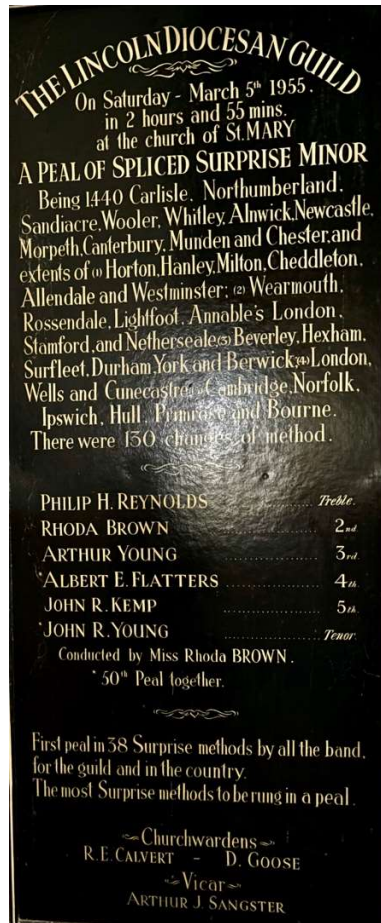 THE LINCOLN DIOCESAN GUILD
On Saturday - March 5th 1955.
in 2 hours and 55 mins.
at the church of St. MARY
A PEAL OF SPLICED SURPRISE MINOR
Being 1440 Carlisle, Northumberland,
Sandiacre, Wooler, Whitley, Alnwick, Newcastle,
Morpeth, Canterbury, Munden and Chester, and
extents of (1) Horton, Hanley, Milton, Cheddleton,
Allendale and Westminster; (2) Wearmouth,
Rossendale, Lightfoot, Annable's London,
Stamford, and Netherseale (3) Beverley, Hexham,
Surfleet, Durham, York and Berwick (4) London,
Wells and Cunecastre Cambridge, Norfolk,
Ipswich, Hull, Primrose and Bourne.
There were 130 changes of method.
PHILIP H. REYNOLDS .......... Treble.
RHODA BROWN .......... 2nd.
ARTHUR YOUNG .......... 3rd.
*ALBERT E. FLATTERS .......... 4th.
JOHN R. KEMP .......... 5th.
*JOHN R. YOUNG .......... Tenor.
Conducted by Miss Rhoda BROWN.
* 50th Peal together.
First peal in 38 Surprise methods by all the band,
for the guild and in the country.
The most Surprise methods to be rung in a peal.
Churchwardens
R. E. CALVERT - D. GOOSE
Vicar
ARTHUR J. SANGSTER